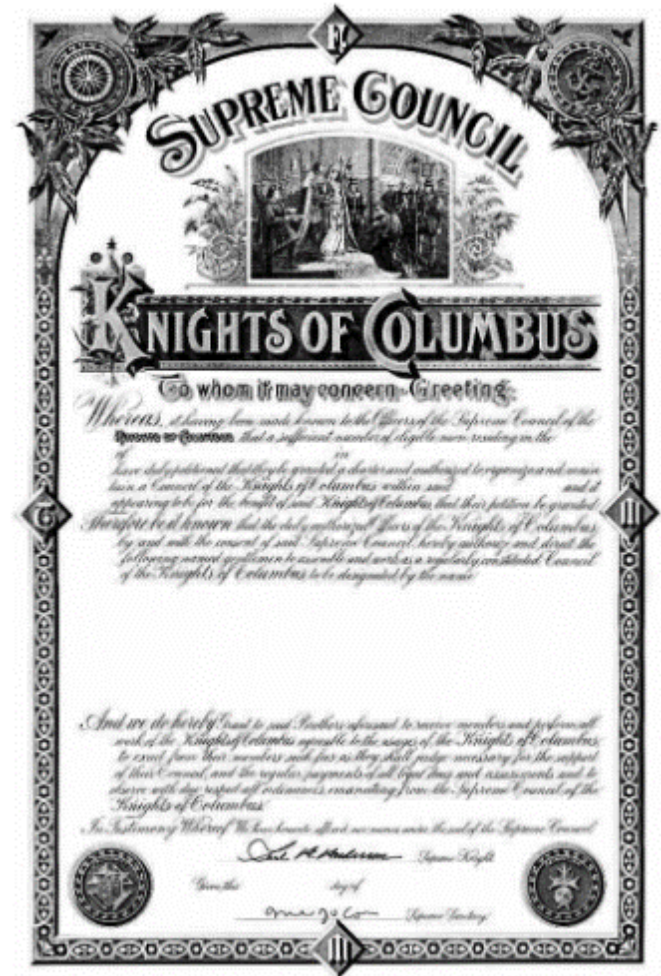 SUPREME COUNCIL
KNIGHTS OF COLUMBUS
To whom it may concern - Greeting:
Whereas, it having been made known to the Officers of the Supreme Council of the
Knights of Columbus that a sufficient number of eligible men residing in the
of in
have duly petitioned that they be granted a charter and authorized to organize and main
tain a Council of the Knights of Columbus within said and it
appearing to be for the benefit of said Knights of Columbus that their petition be granted
Therefore be it known that the duly authorized Officers of the Knights of Columbus
by and with the consent of said Supreme Council, hereby authorize and direct the
following named gentlemen to assemble and work as a regularly constituted Council
of the Knights of Columbus to be designated by the name
And we do hereby Grant to said Brothers aforesaid to receive members and perform all
work of the Knights of Columbus agreeable to the usages of the Knights of Columbus,
to exact from their members such fees as they shall judge necessary for the support
of their Council, and the regular payments of all legal dues and assessments and to
observe with due respect all ordinances emanating from the Supreme Council of the
Knights of Columbus.
In Testimony Whereof We have hereunto affixed our names under the seal of the Supreme Council
Supreme Knight
Given this day of
Supreme Secretary